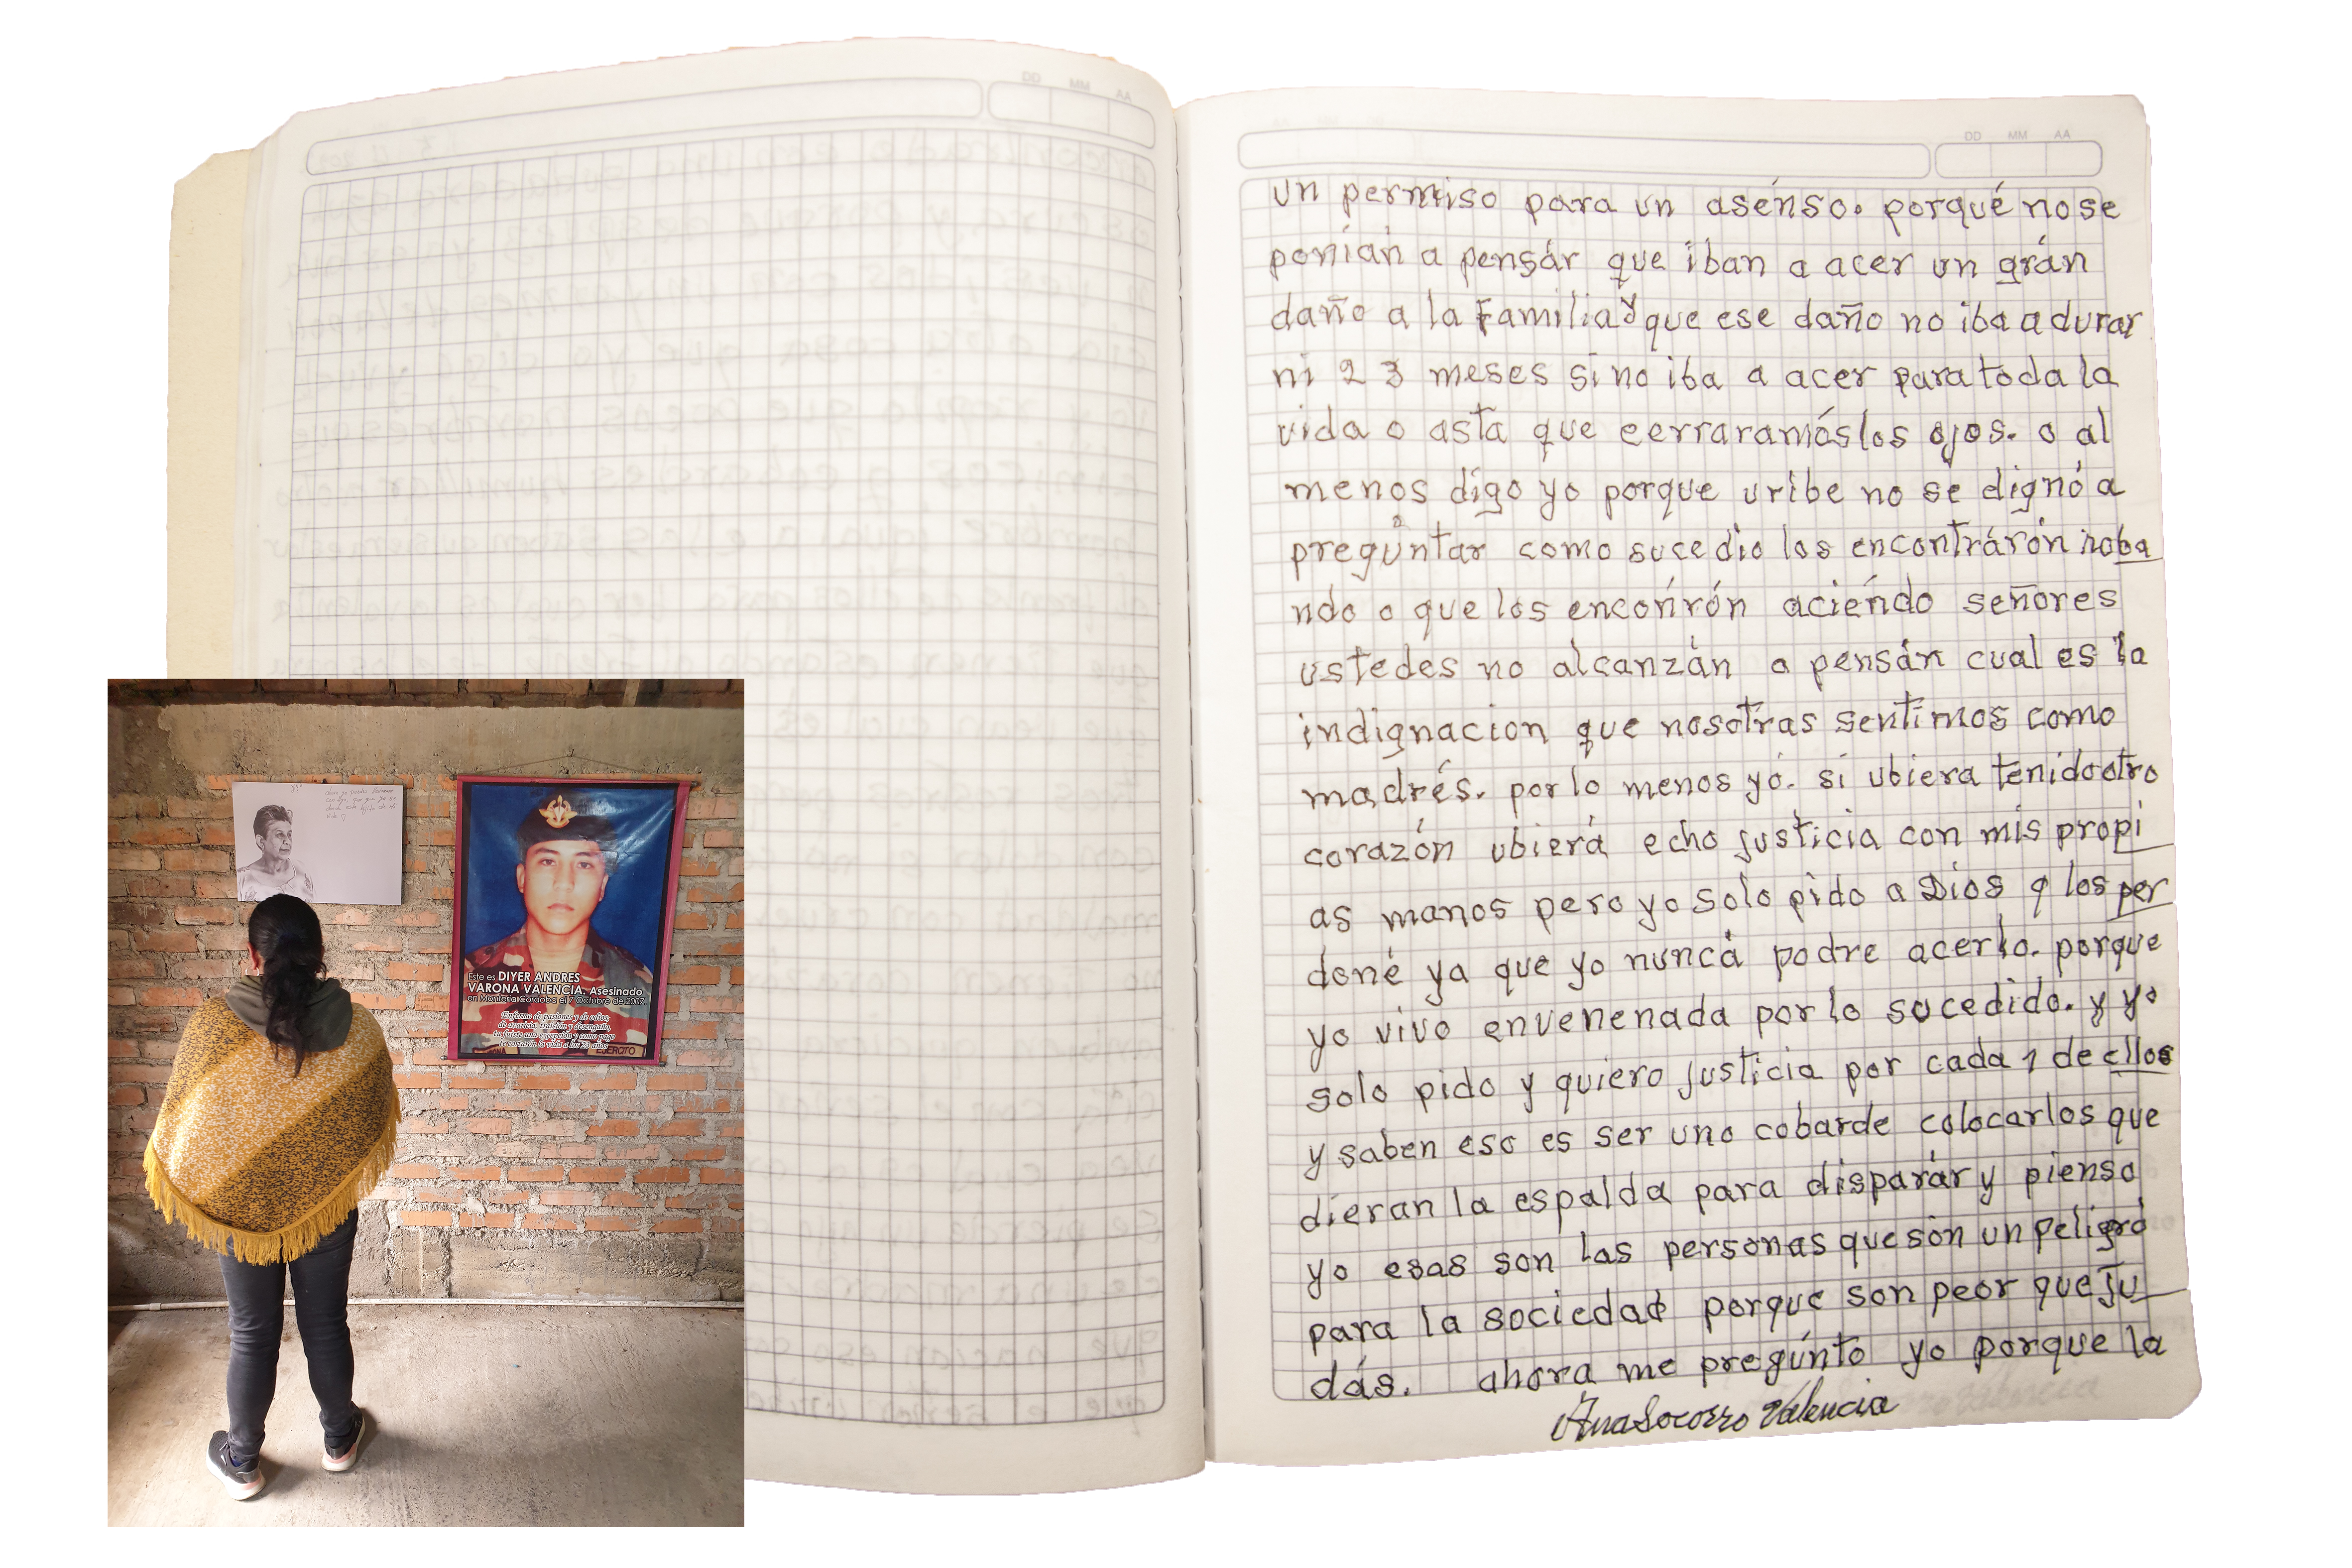 DD MM AA
DD MM AA
un permiso para un asénso. porqué no se
ponián a pensár que iban a acer un grán
daño a la Familia y que ese daño no iba a durar
ni 2 3 meses sino iba a acer para toda la
vida o asta que cerraramós los ojos. o al
menos digo yo porque uribe no se dignó a
pregúntar como sucedio los encontrárón roba
ndo o que los enconrón aciéndo señores
ustedes no alcanzán a pensán cual es la
indignacion que nosotras sentimos como
madrés. por lo menos yó. si ubiera tenido otro
corazón ubierá echo justicia con mis propi
as manos pero yo solo pido a Dios q los per
doné ya que yo nuncá podre acerlo. porque
yo vivo envenenada por lo sucedido. y yo
solo pido y quiero justicia por cada 1 de ellos
y saben eso es ser uno cobarde colocarlos que
dieran la espalda para disparár y pienso
yo esas son las personas que són un peligró
para la sociedad porque son peor que Ju
dás. ahora me pregúnto yo porque la
Ana Socorro Valencia
Este es DIYER ANDRES
VARONA VALENCIA. Asesinado
en Montería Cordoba el 7 Octubre de 2007
Enfermo de pasiones y de odios,
de avaricia, traición y desengaño,
te cortaron la vida a los 23 años
EJERCITO